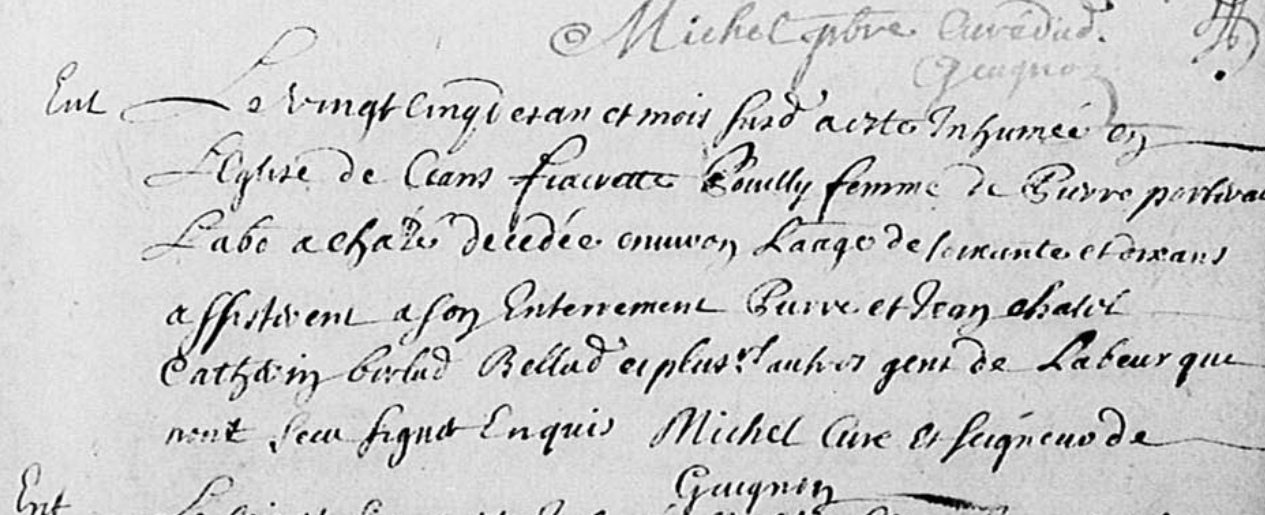 Michel pbre Curé dud.
Gueugnon
Ent Le vingt cinq desan et mois susd a esté Inhumée en
L'Eglise de Ceans fiacrette Pouilly femme de Pierre
Labo a decedée environ Laage de soixante et dixans
assisterent a son Enterrement Pierre et Jean chatel
Catherin et plusrs autres gens de Labeur que
nont sceu signer Enquis Michel Cure et seigneur de
Gueugnon
Ent